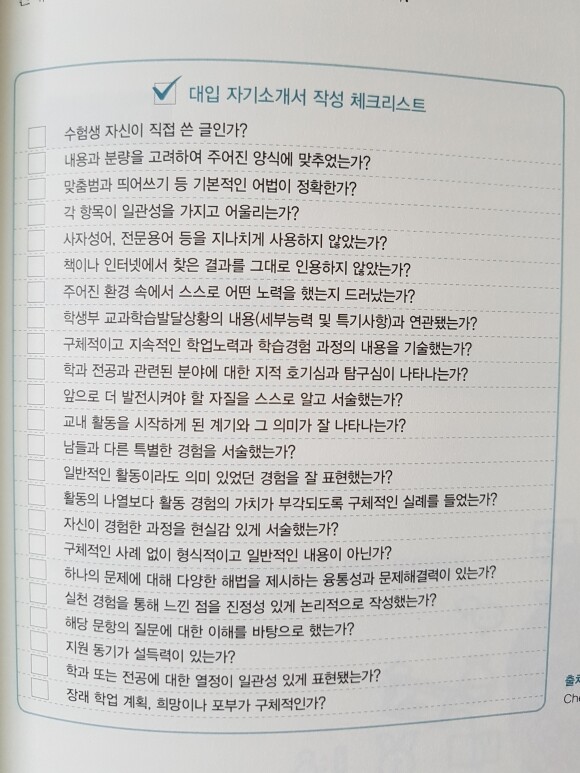 대입 자기소개서 작성 체크리스트
수험생 자신이 직접 쓴 글인가?
내용과 분량을 고려하여 주어진 양식에 맞추었는가?
맞춤범과 띄어쓰기 등 기본적인 어법이 정확한가?
각 항목이 일관성을 가지고 어울리는가?
사자성어, 전문용어 등을 지나치게 사용하지 않았는가?
책이나 인터넷에서 찾은 결과를 그대로 인용하지 않았는가?
주어진 환경 속에서 스스로 어떤 노력을 했는지 드러났는가?
학생부 교과학습발달상황의 내용(세부능력 및 특기사항)과 연관됐는가?
구체적이고 지속적인 학업노력과 학습경험 과정의 내용을 기술했는가?
학과 전공과 관련된 분야에 대한 지적 호기심과 탐구심이 나타나는가?
앞으로 더 발전시켜야 할 자질을 스스로 알고 서술했는가?
교내 활동을 시작하게 된 계기와 그 의미가 잘 나타나는가?
남들과 다른 특별한 경험을 서술했는가?
일반적인 활동이라도 의미 있었던 경험을 잘 표현했는가?
활동의 나열보다 활동 경험의 가치가 부각되도록 구체적인 실례를 들었는가?
자신이 경험한 과정을 현실감 있게 서술했는가?
구체적인 사례 없이 형식적이고 일반적인 내용이 아닌가?
하나의 문제에 대해 다양한 해법을 제시하는 융통성과 문제해결력이 있는가?
실천 경험을 통해 느낀 점을 진정성 있게 논리적으로 작성했는가?
해당 문항의 질문에 대한 이해를 바탕으로 했는가?
지원 동기가 설득력이 있는가?
학과 또는 전공에 대한 열정이 일관성 있게 표현됐는가?
장래 학업 계획, 희망이나 포부가 구체적인가?